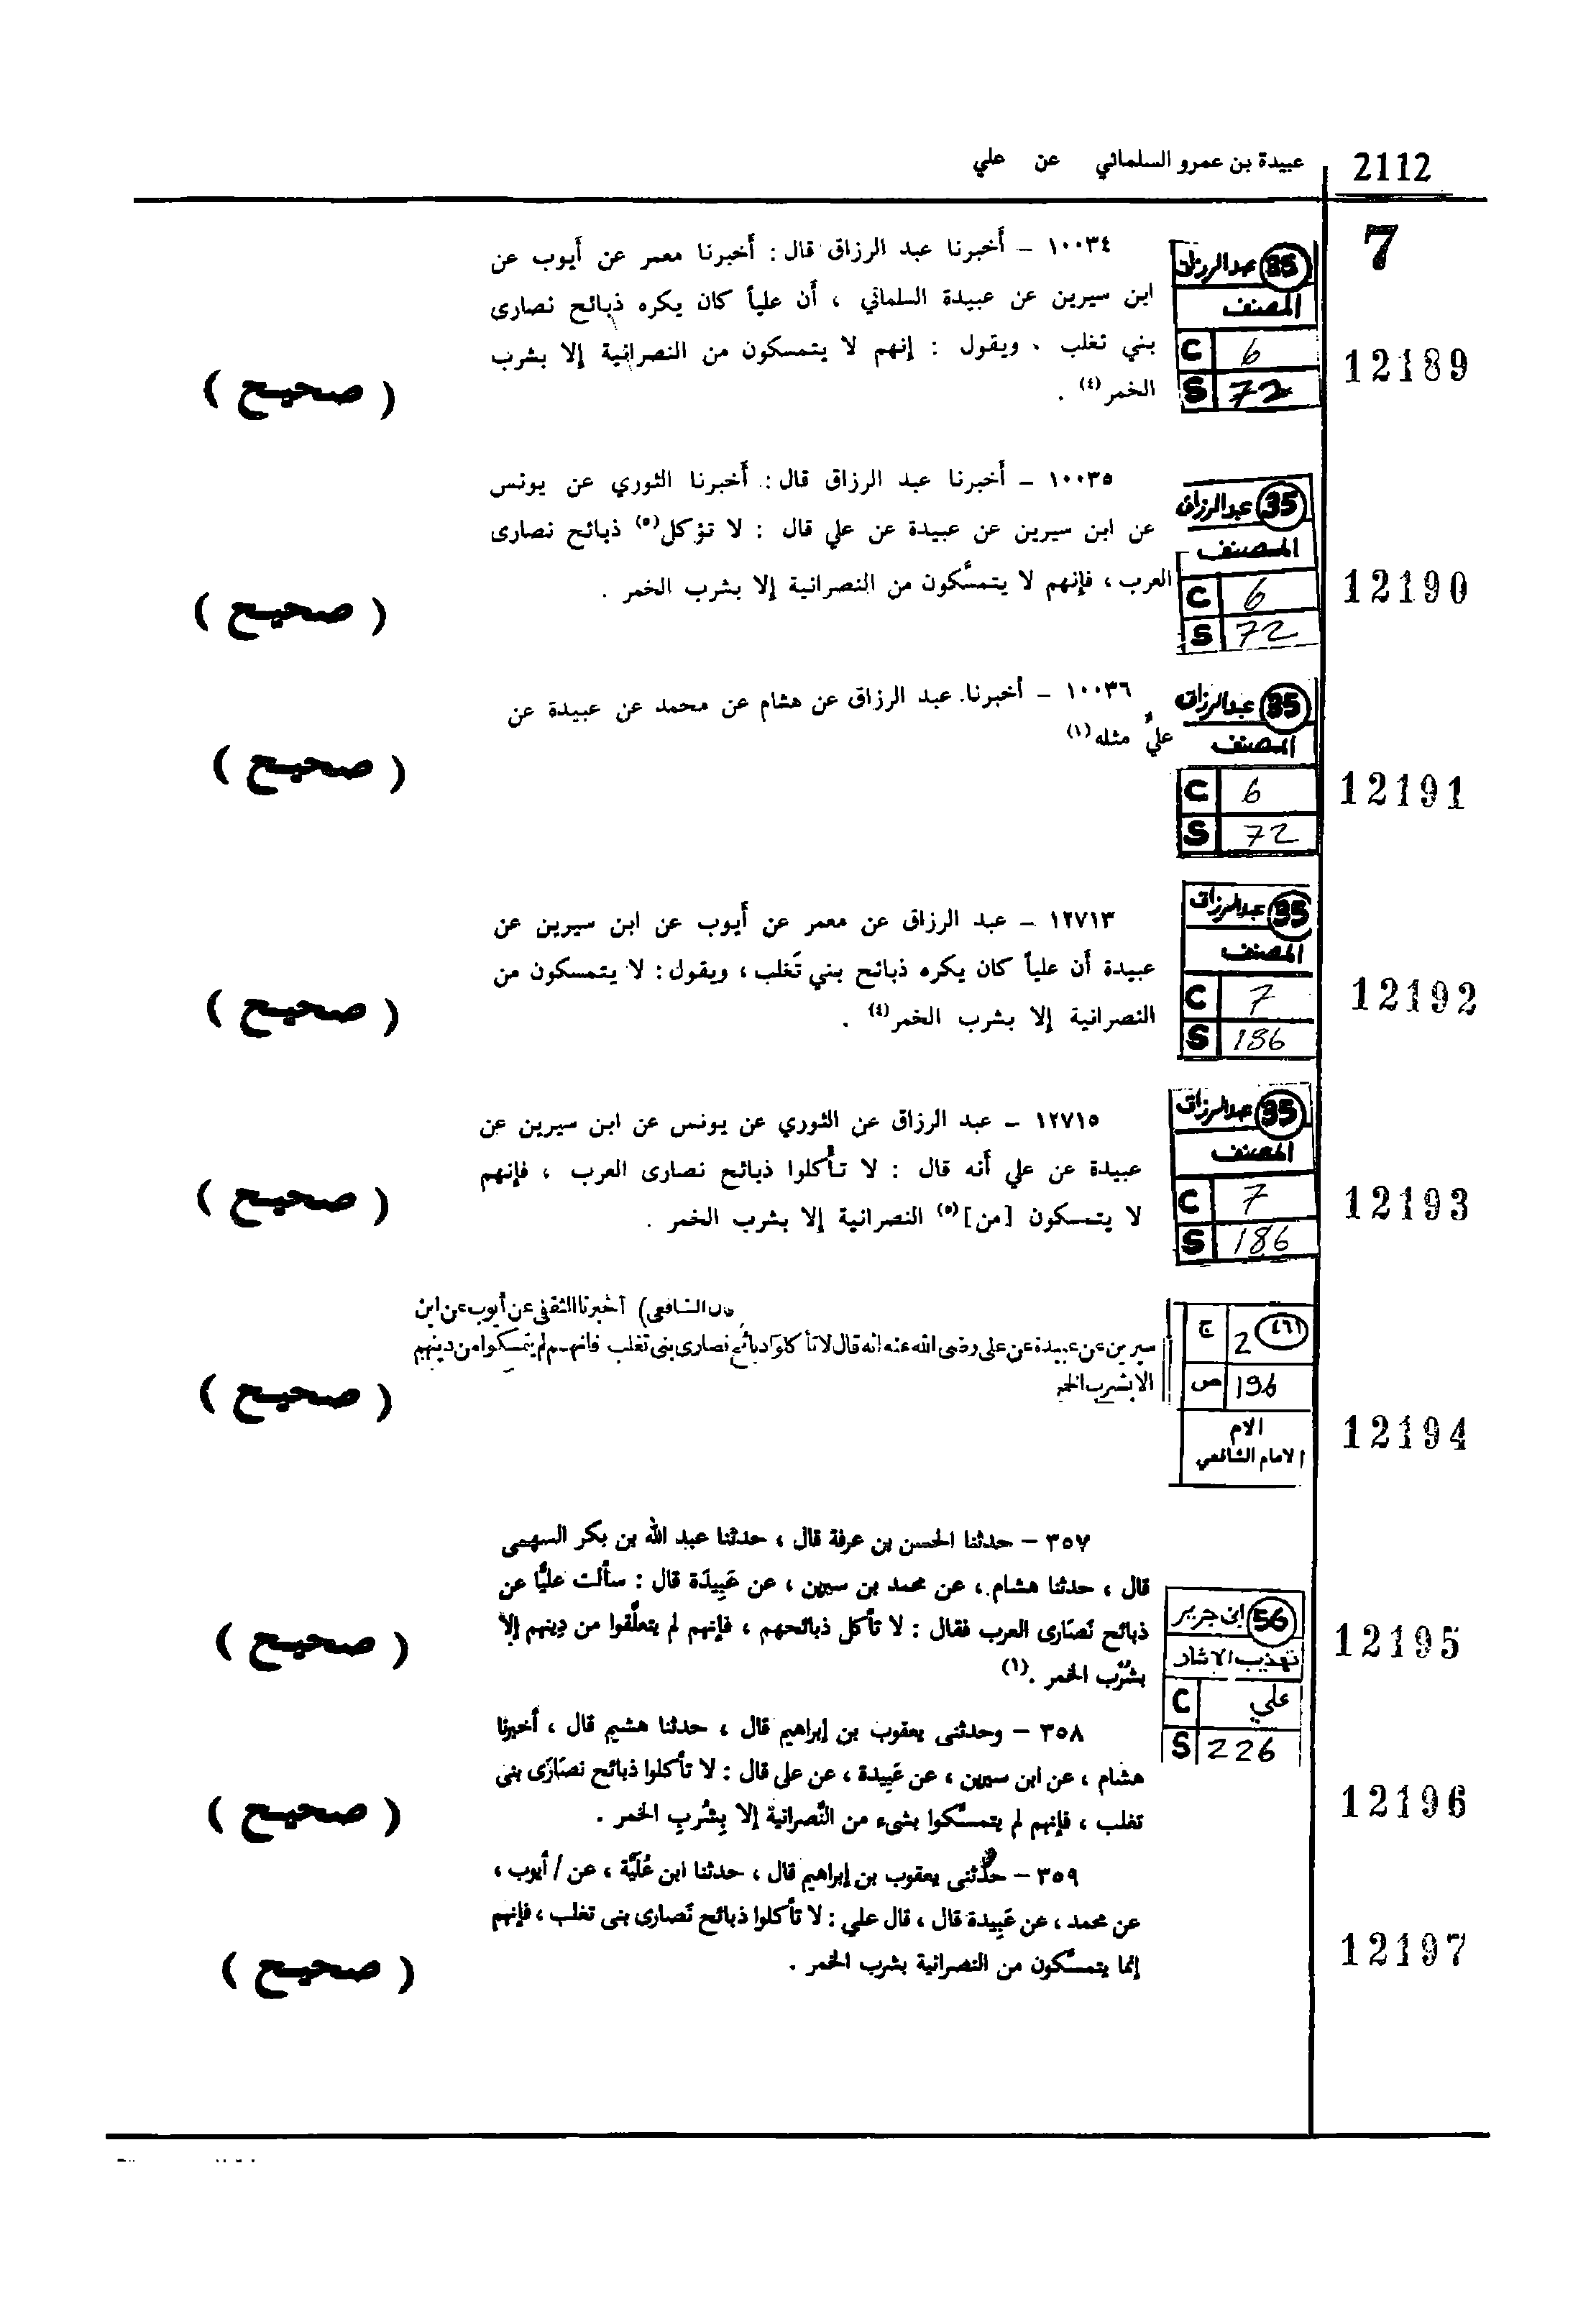 2112 عبيدة بن عمرو السلماني عن علي
7
12189
35 عبد الرزاق
المصنف
C 6
S 72
١٠٠٣٤ – أخبرنا عبد الرزاق قال : أخبرنا معمر عن أيوب عن
ابن سيرين عن عبيدة السلماني ، أن علياً كان يكره ذبائح نصارى
بني تغلب . ويقول : إنهم لا يتمسكون من النصرانية إلا بشرب
الخمر (٤) .
( صحيح )
12190
35 عبد الرزاق
المصنف
C 6
S 72
١٠٠٣٥ – أخبرنا عبد الرزاق قال : أخبرنا الثوري عن يونس
عن ابن سيرين عن عبيدة عن علي قال : لا تؤكل (٥) ذبائح نصارى
العرب ، فإنهم لا يتمسّكون من النصرانية إلا بشرب الخمر .
( صحيح )
12191
35 عبد الرزاق
المصنف
C 6
S 72
١٠٠٣٦ – أخبرنا عبد الرزاق عن هشام عن محمد عن عبيدة عن
علي مثله (١)
( صحيح )
12192
35 عبد الرزاق
المصنف
C 7
S 186
١٢٧١٣ – عبد الرزاق عن معمر عن أيوب عن ابن سيرين عن
عبيدة أن علياً كان يكره ذبائح بني تَغلب ، ويقول : لا يتمسكون من
النصرانية إلا بشرب الخمر (٤) .
( صحيح )
12193
35 عبد الرزاق
المصنف
C 7
S 186
١٢٧١٥ – عبد الرزاق عن الثوري عن يونس عن ابن سيرين عن
عبيدة عن علي أنه قال : لا تأكلوا ذبائح نصارى العرب ، فإنهم
لا يتمسكون [من] (٥) النصرانية إلا بشرب الخمر .
( صحيح )
12194
٤٦١ 2 ج
196 ص
الام
الامام الشافعي
الشافعى) أخبرنا الثقفى عن أيوب عن ابن
سيرين عن عبيدة عن على رضى الله عنه انه قال لا تأكلوا ذبائح نصارى بنى تغلب فانهم لم يتمسكوا من دينهم
الا بشرب الخمر
( صحيح )
12195
56 ابن جرير
تهذيب الاثار
C علي
S 226
٣٥٧ – حدثنا الحسن بن عرفة قال ، حدثنا عبد الله بن بكر السهمى
قال ، حدثنا هشام ، عن محمد بن سيرين ، عن عَبِيدَة قال : سألت عليًّا عن
ذبائح نَصَارى العرب فقال : لا تأكل ذبائحهم ، فإنهم لم يتعلَّقوا من دِينهم إلاّ
بشُرْب الخمر . (١)
( صحيح )
12196
٣٥٨ – وحدثنى يعقوب بن إبراهيم قال ، حدثنا هشيم قال ، أخبرنا
هشام ، عن ابن سيرين ، عن عَبِيدة ، عن على قال : لا تأكلوا ذبائح نصَارَى بنى
تغلب ، فإنهم لم يتمسَّكوا بشىء من النَّصرانية إلا بِشُربِ الخمر .
( صحيح )
12197
٣٥٩ – حدَّثنى يعقوب بن إبراهيم قال ، حدثنا ابن عُلَيَّة ، عن / أيوب ،
عن محمد ، عن عَبِيدة قال ، قال علي : لا تأكلوا ذبائح نَصارى بنى تغلب ، فإنهم
إنما يتمسَّكون من النصرانية بشرب الخمر .
( صحيح )